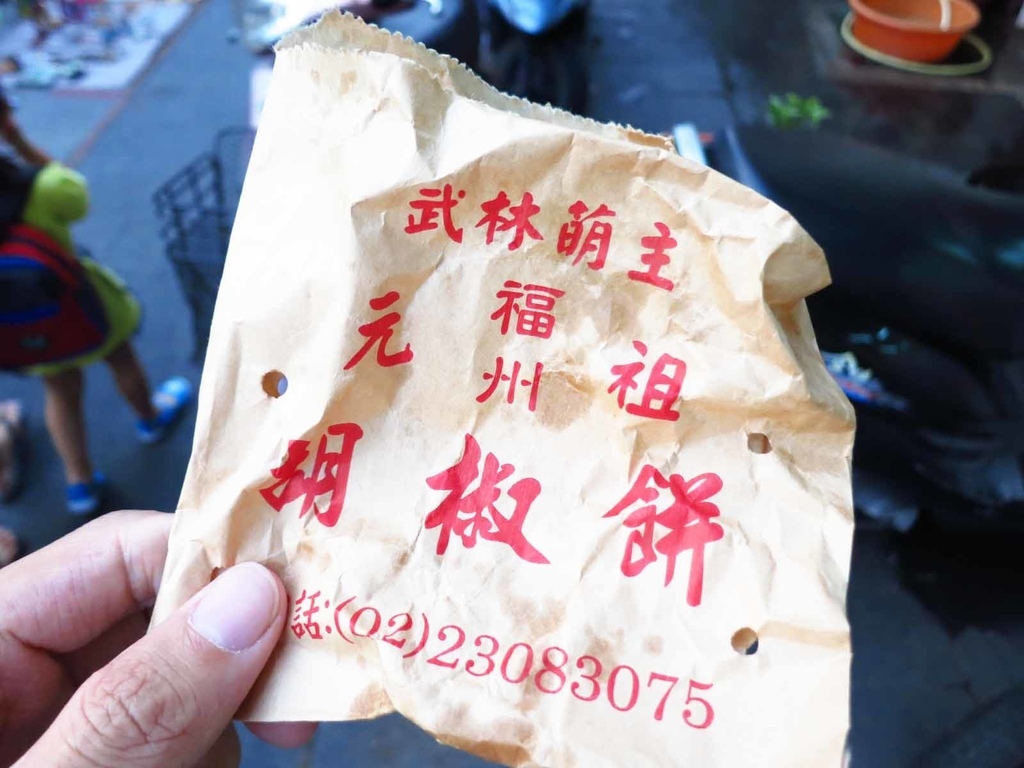 武林萌主
元福州祖
胡椒餅
話:(02)23083075